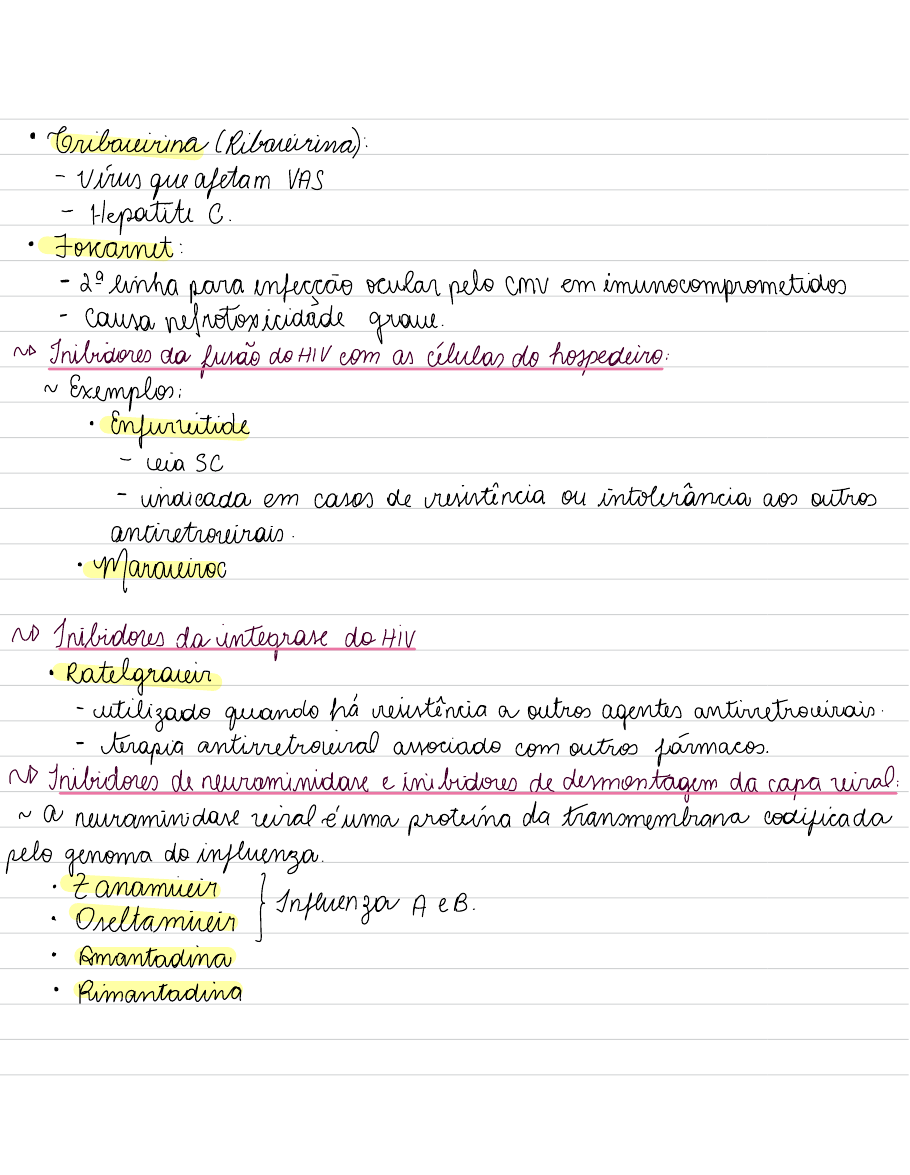 • Tribavirina (Ribavirina):
- Vírus que afetam VAS
- Hepatite C.
• Foscarnet:
- 2ª linha para infecção ocular pelo CMV em imunocomprometidos
- Causa nefrotoxicidade grave.
~> Inibidores da fusão do HIV com as células do hospedeiro:
~ Exemplos:
• Enfuvirtide
- via SC
- indicada em casos de resistência ou intolerância aos outros
antiretrovirais.
• Maraviroc
~> Inibidores da integrase do HIV
• Ratelgravir
- utilizado quando há resistência a outros agentes antirretrovirais.
- terapia antirretroviral associado com outros fármacos.
~> Inibidores de neuraminidase e inibidores de desmontagem da capa viral:
~ A neuraminidase viral é uma proteína da transmembrana codificada
pelo genoma do influenza.
• Zanamivir
• Oseltamivir } Influenza A e B.
• Amantadina
• Rimantadina